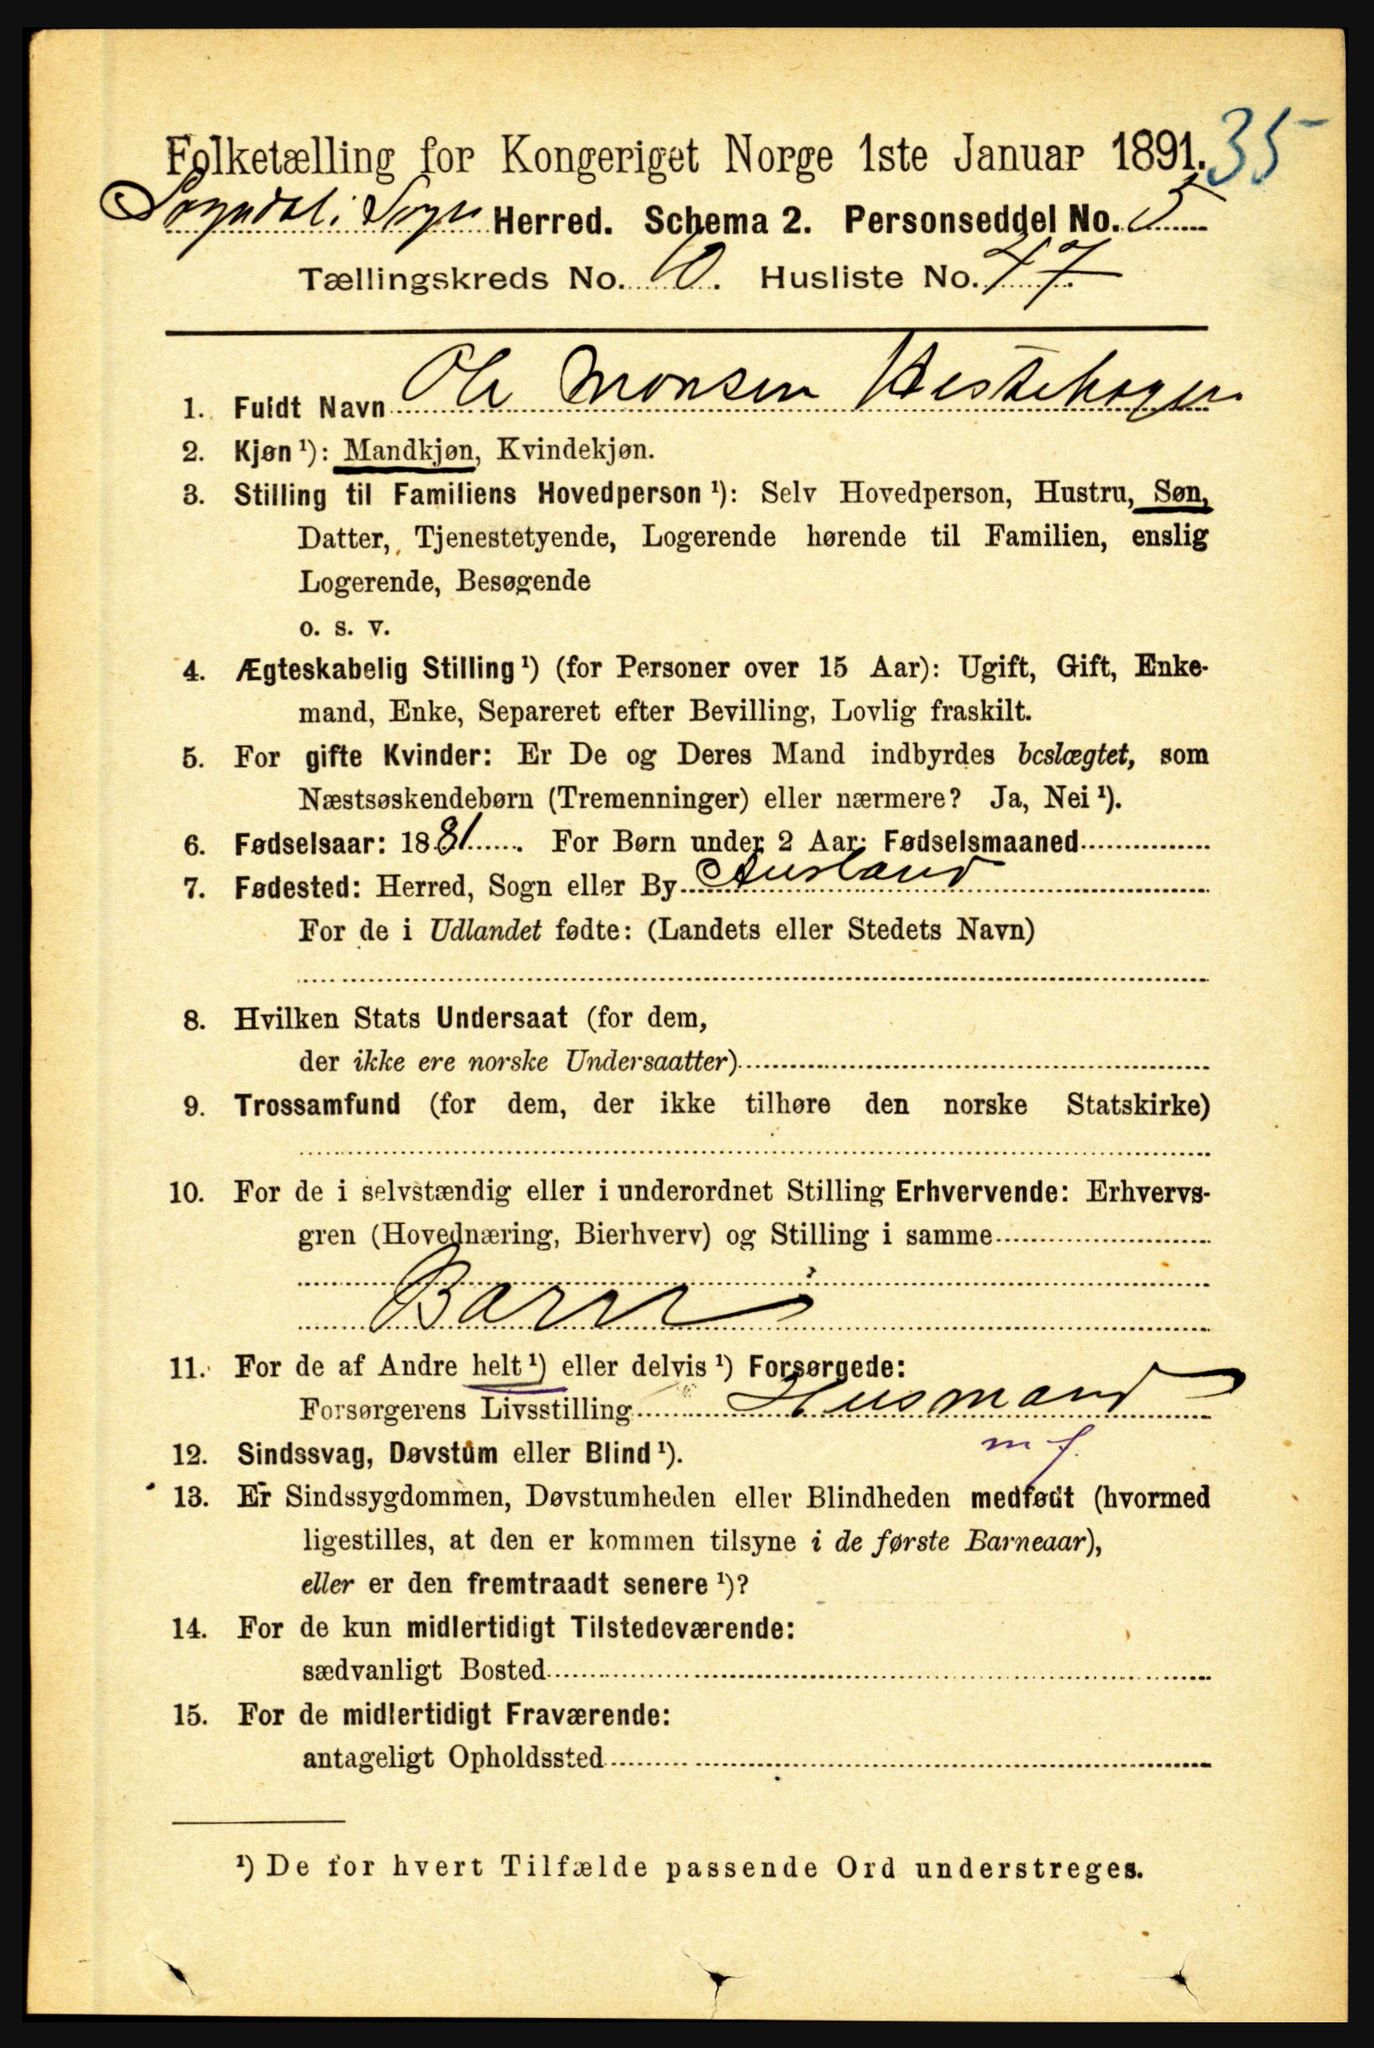 35
Folketælling for Kongeriget Norge 1ste Januar 1891.
Sogndal i Sogn Herred. Schema 2. Personseddel No. 5
Tællingskreds No. 6. Husliste No. 47.
1. Fuldt Navn Ole Monsen Hestehagen
2. Kjøn ¹): Mandkjøn, Kvindekjøn.
3. Stilling til Familiens Hovedperson ¹): Selv Hovedperson, Hustru, Søn,
Datter, Tjenestetyende, Logerende hørende til Familien, enslig
Logerende, Besøgende
o. s. v.
4. Ægteskabelig Stilling ¹) (for Personer over 15 Aar): Ugift, Gift, Enke-
mand, Enke, Separeret efter Bevilling, Lovlig fraskilt.
5. For gifte Kvinder: Er De og Deres Mand indbyrdes beslægtet, som
Næstsøskendebørn (Tremenninger) eller nærmere? Ja, Nei ¹).
6. Fødselsaar: 1881. For Børn under 2 Aar: Fødselsmaaned
7. Fødested: Herred, Sogn eller By Aurland
For de i Udlandet fødte: (Landets eller Stedets Navn)
8. Hvilken Stats Undersaat (for dem,
der ikke ere norske Undersaatter)
9. Trossamfund (for dem, der ikke tilhøre den norske Statskirke)
10. For de i selvstændig eller i underordnet Stilling Erhvervende: Erhvervs-
gren (Hovednæring, Bierhverv) og Stilling i samme
Barn
11. For de af Andre helt ¹) eller delvis ¹) Forsørgede:
Forsørgerens Livsstilling Husmand
m f.
12. Sindssvag, Døvstum eller Blind ¹).
13. Er Sindssygdommen, Døvstumheden eller Blindheden medfødt (hvormed
ligestilles, at den er kommen tilsyne i de første Barneaar),
eller er den fremtraadt senere ¹)?
14. For de kun midlertidigt Tilstedeværende:
sædvanligt Bosted
15. For de midlertidigt Fraværende:
antageligt Opholdssted
¹) De for hvert Tilfælde passende Ord understreges.